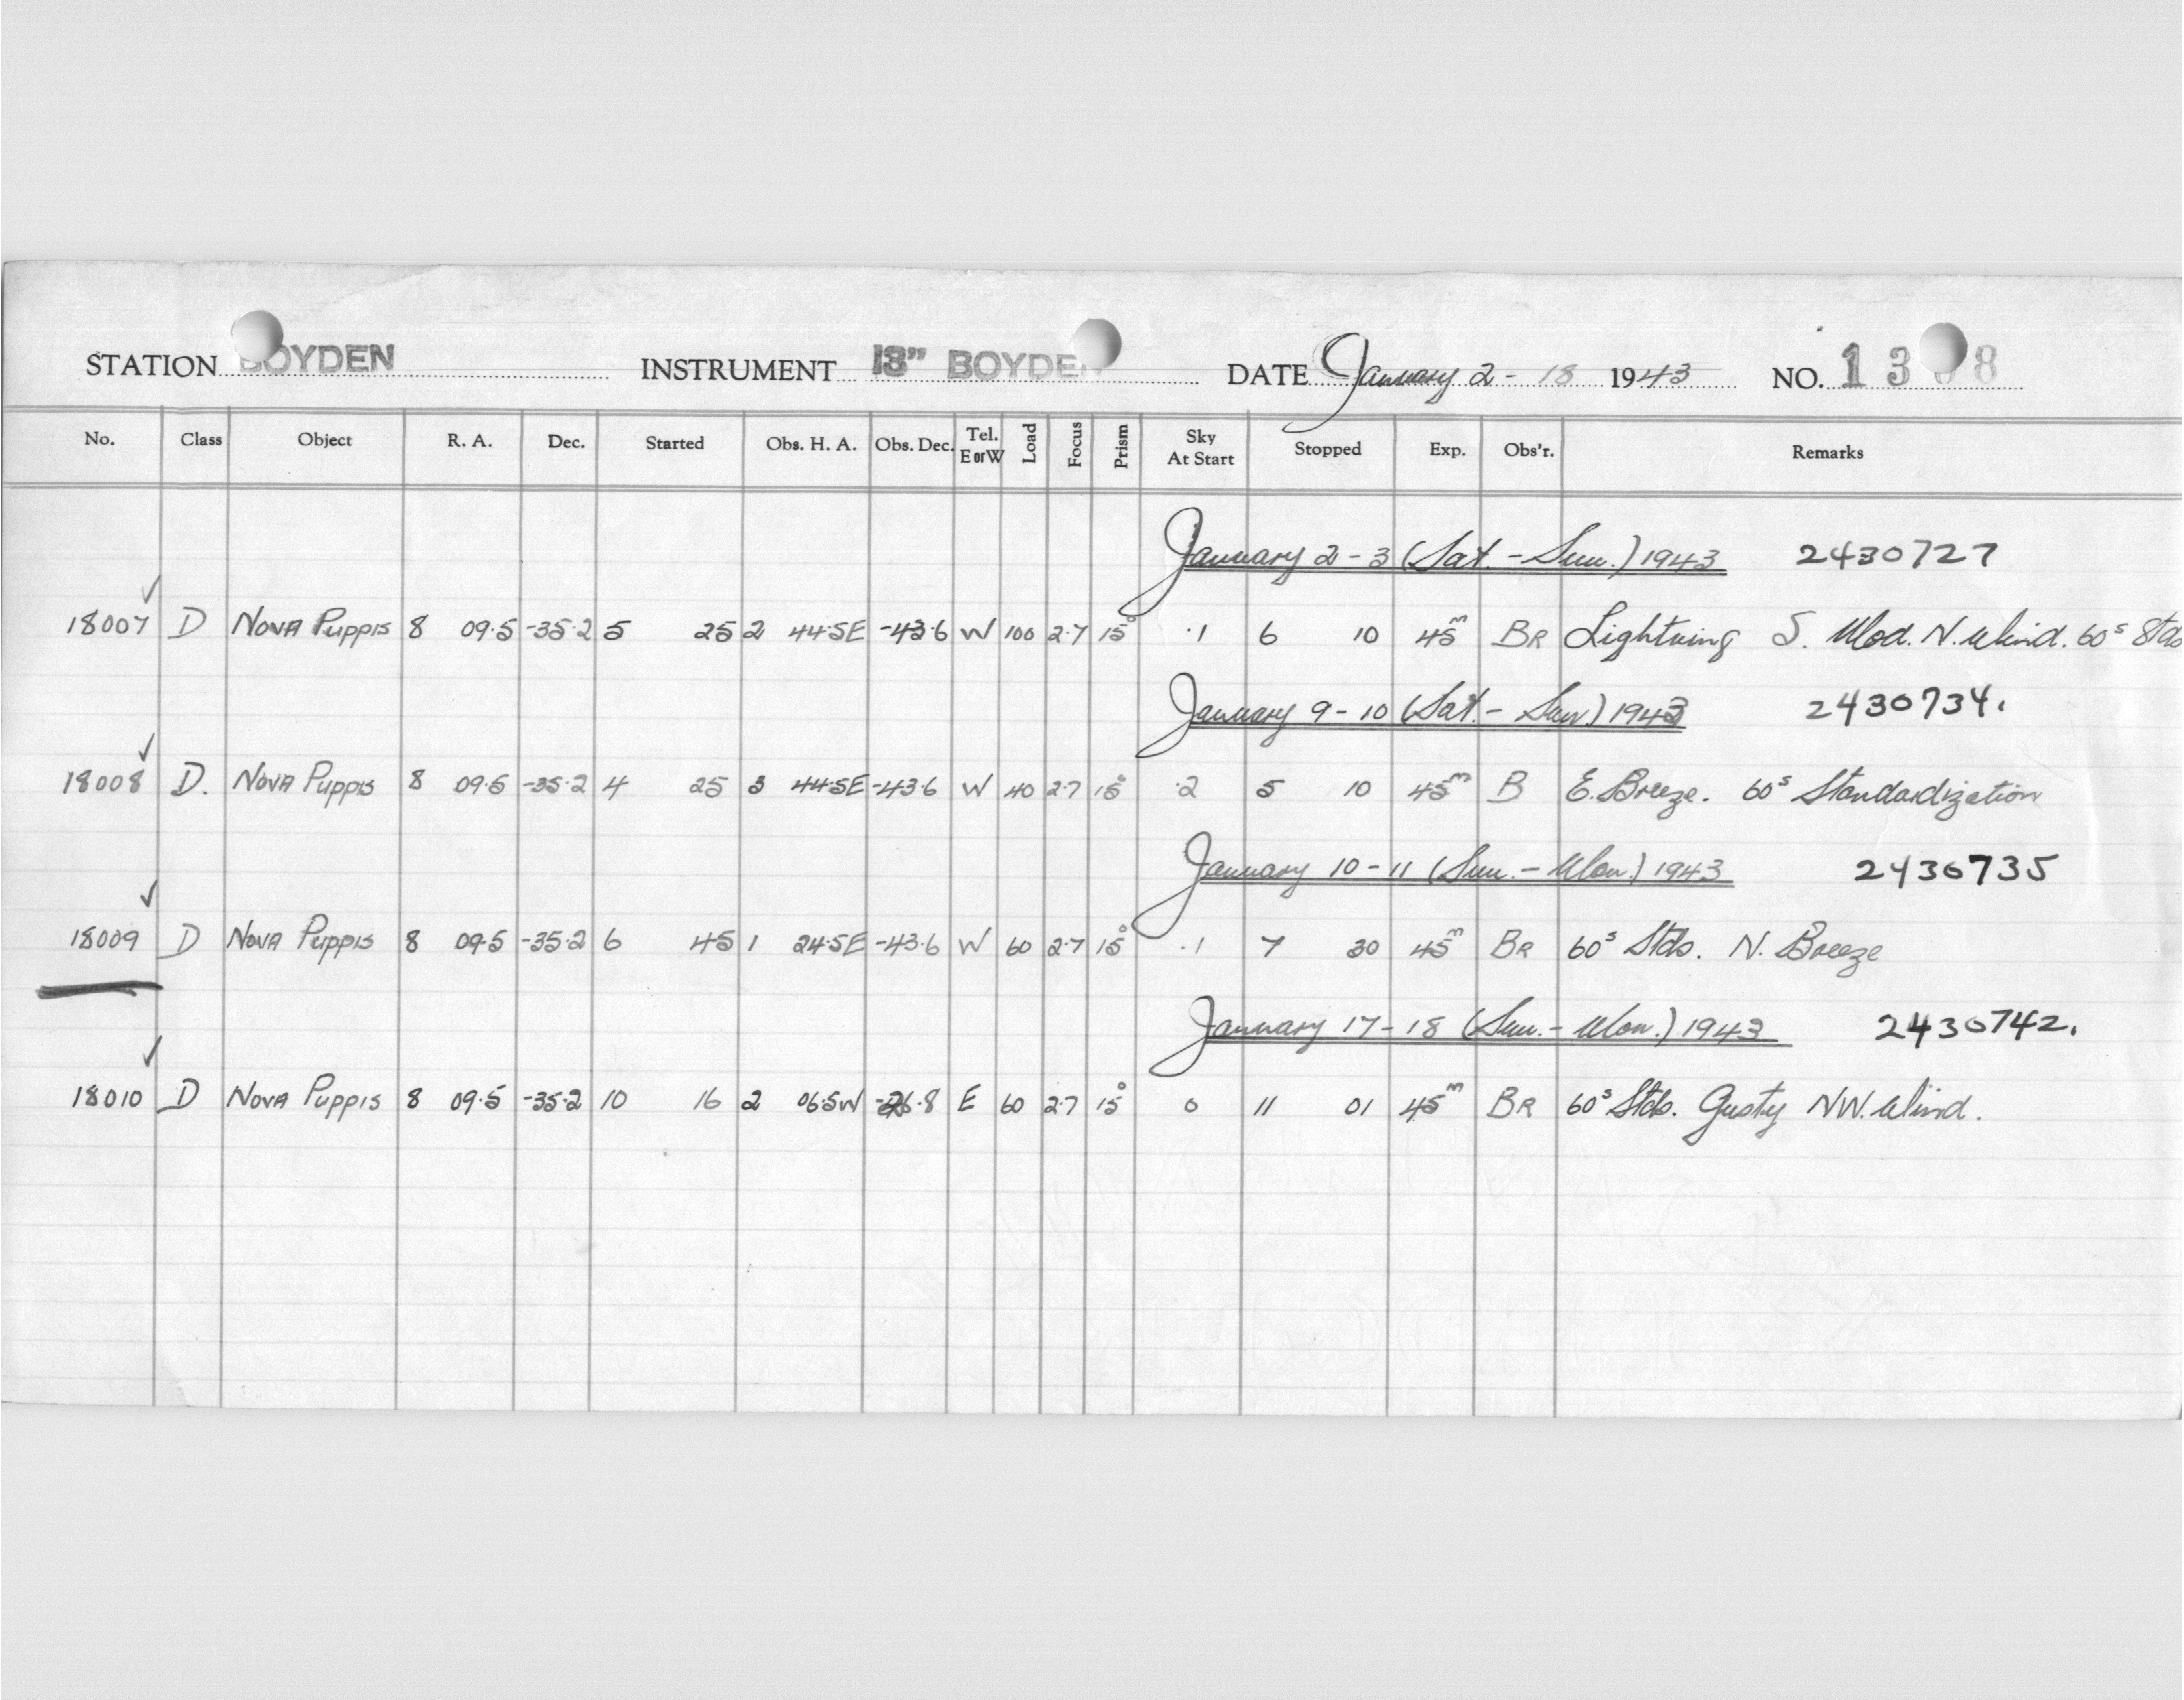 STATION BOYDEN INSTRUMENT 13" BOYDEN DATE January 2 - 18 1943 NO. 13 8
No. Class Object R. A. Dec. Started Obs. H. A. Obs. Dec. Tel. E or W Load Focus Prism Sky At Start Stopped Exp. Obs'r. Remarks
January 2 - 3 (Sat. - Sun.) 1943 2430727
✓
18007 D Nova Puppis 8 09.5 -35.2 5 25 2 44.5E -43.6 W 100 2.7 15° .1 6 10 45m BR Lightning S. Mod. N. Wind. 60s Stds
January 9 - 10 (Sat. - Sun.) 1943 2430734.
✓
18008 D. Nova Puppis 8 09.5 -35.2 4 25 3 44.5E -43.6 W 40 2.7 15° .2 5 10 45m B E. Breeze. 60s Standardization
January 10 - 11 (Sun. - Mon.) 1943 2430735
✓
18009 D Nova Puppis 8 09.5 -35.2 6 45 1 24.5E -43.6 W 60 2.7 15° .1 7 30 45m BR 60s Stds. N. Breeze
January 17 - 18 (Sun. - Mon.) 1943 2430742.
✓
18010 D Nova Puppis 8 09.5 -35.2 10 16 2 06.5W -26.8 E 60 2.7 15° 0 11 01 45m BR 60s Stds. Gusty NW. Wind.